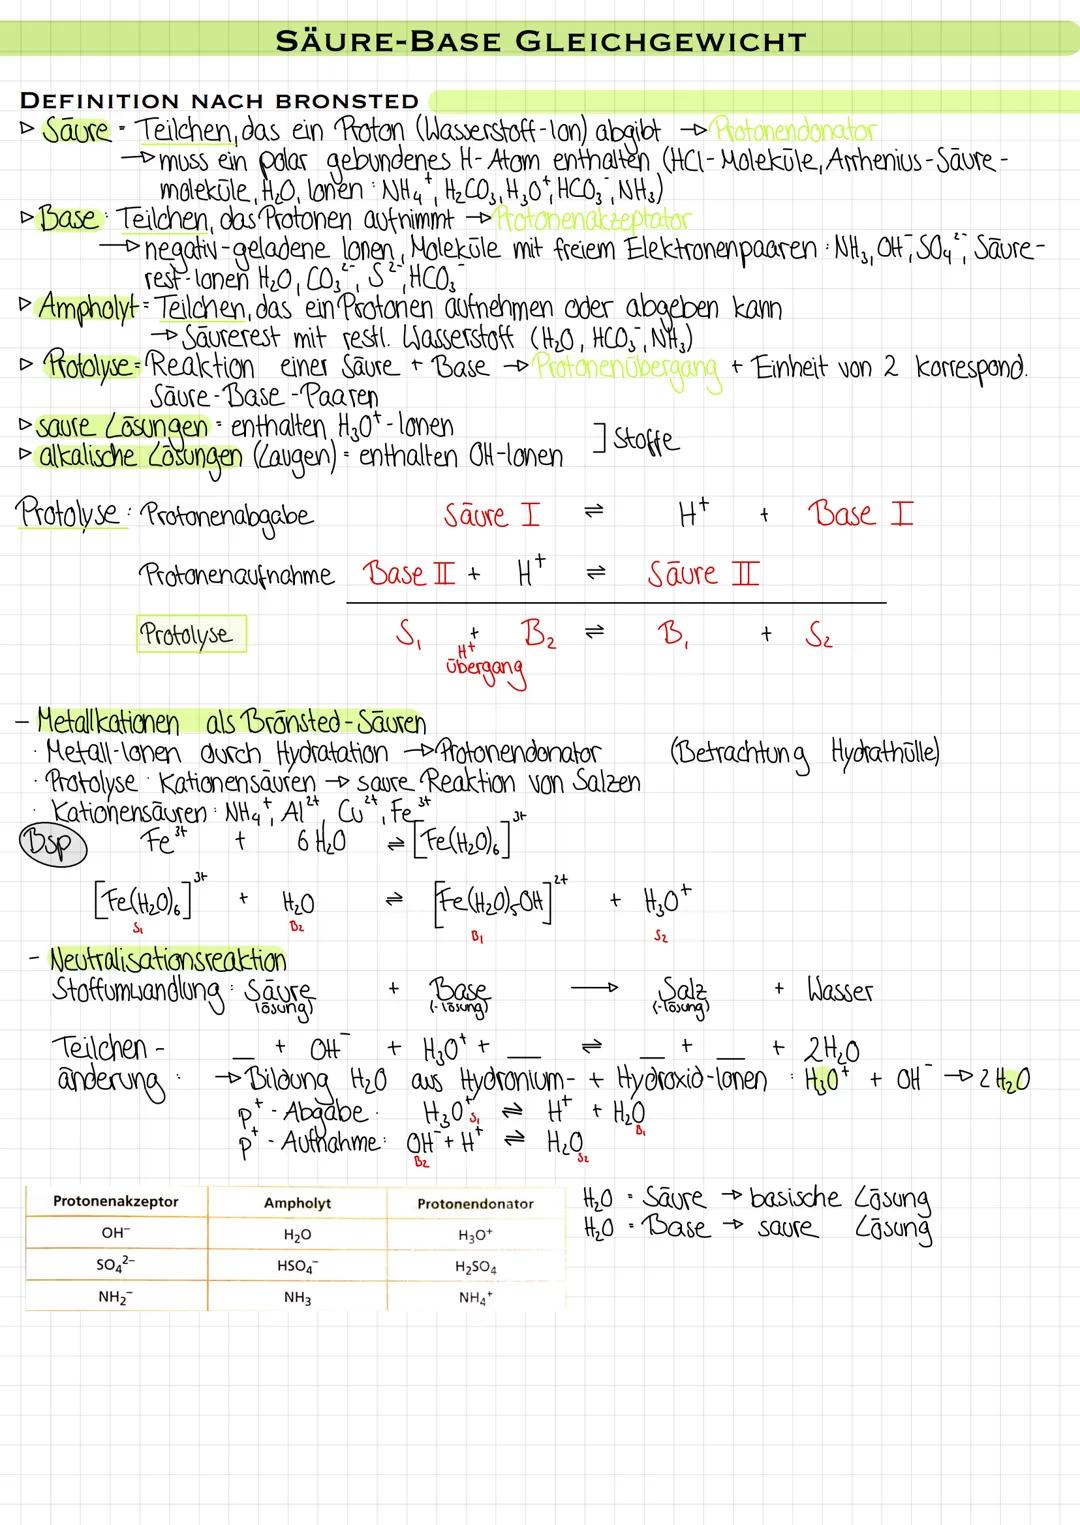 SÄURE-BASE GLEICHGEWICHT
DEFINITION NACH BRONSTED
▷ Säure = Teilchen, das ein Proton (Wasserstoff-Ion) abgibt → Protonendonator
→ muss ein polar gebundenes H-Atom enthalten (HCl-Moleküle, Arrhenius-Säure-
moleküle, H₂O, Ionen: NH₄⁺, H₂CO₃, H₃O⁺, HCO₃⁻, NH₃)
▷ Base: Teilchen, das Protonen aufnimmt → Protonenakzeptator
→ negativ-geladene Ionen, Moleküle mit freiem Elektronenpaaren: NH₃, OH⁻, SO₄²⁻, Säure-
rest-Ionen H₂O, CO₃²⁻, S²⁻, HCO₃⁻
▷ Ampholyt = Teilchen, das ein Protonen aufnehmen oder abgeben kann
→ Säurerest mit restl. Wasserstoff (H₂O, HCO₃⁻, NH₃)
▷ Protolyse = Reaktion einer Säure + Base → Protonenübergang + Einheit von 2 korrespond.
Säure-Base-Paaren
▷ saure Lösungen = enthalten H₃O⁺-Ionen
▷ alkalische Lösungen (Laugen) = enthalten OH-Ionen ] Stoffe
Protolyse: Protonenabgabe Säure I ⇌ H⁺ + Base I
Protonenaufnahme Base II + H⁺ ⇌ Säure II
Protolyse S₁ + B₂ ⇌ B₁ + S₂
H⁺
übergang
- Metallkationen als Brönsted-Säuren
· Metall-Ionen durch Hydratation → Protonendonator (Betrachtung Hydrathülle)
· Protolyse: Kationensäuren → saure Reaktion von Salzen
· Kationensäuren: NH₄⁺, Al²⁺, Cu²⁺, Fe³⁺
Bsp Fe³⁺ + 6 H₂O ⇌ [Fe(H₂O)₆]³⁺
[Fe(H₂O)₆]³⁺ + H₂O ⇌ [Fe(H₂O)₅OH]²⁺ + H₃O⁺
S₁ B₂ B₁ S₂
- Neutralisationsreaktion
Stoffumwandlung: Säure + Base → Salz + Wasser
lösung) (-lösung) (-lösung)
Teilchen- _ + OH⁻ + H₃O⁺ + _ ⇌ _ + _ + 2H₂O
änderung: → Bildung H₂O aus Hydronium- + Hydroxid-Ionen: H₃O⁺ + OH⁻ → 2 H₂O
p⁺-Abgabe: H₃O⁺ S₁ ⇌ H⁺ + H₂O B₁
p⁺-Aufnahme: OH⁻ + H⁺ ⇌ H₂O S₂
B₂
Protonenakzeptor Ampholyt Protonendonator
OH⁻ H₂O H₃O⁺
SO₄²⁻ HSO₄⁻ H₂SO₄
NH₂⁻ NH₃ NH₄⁺
H₂O = Säure → basische Lösung
H₂O = Base → saure Lösung